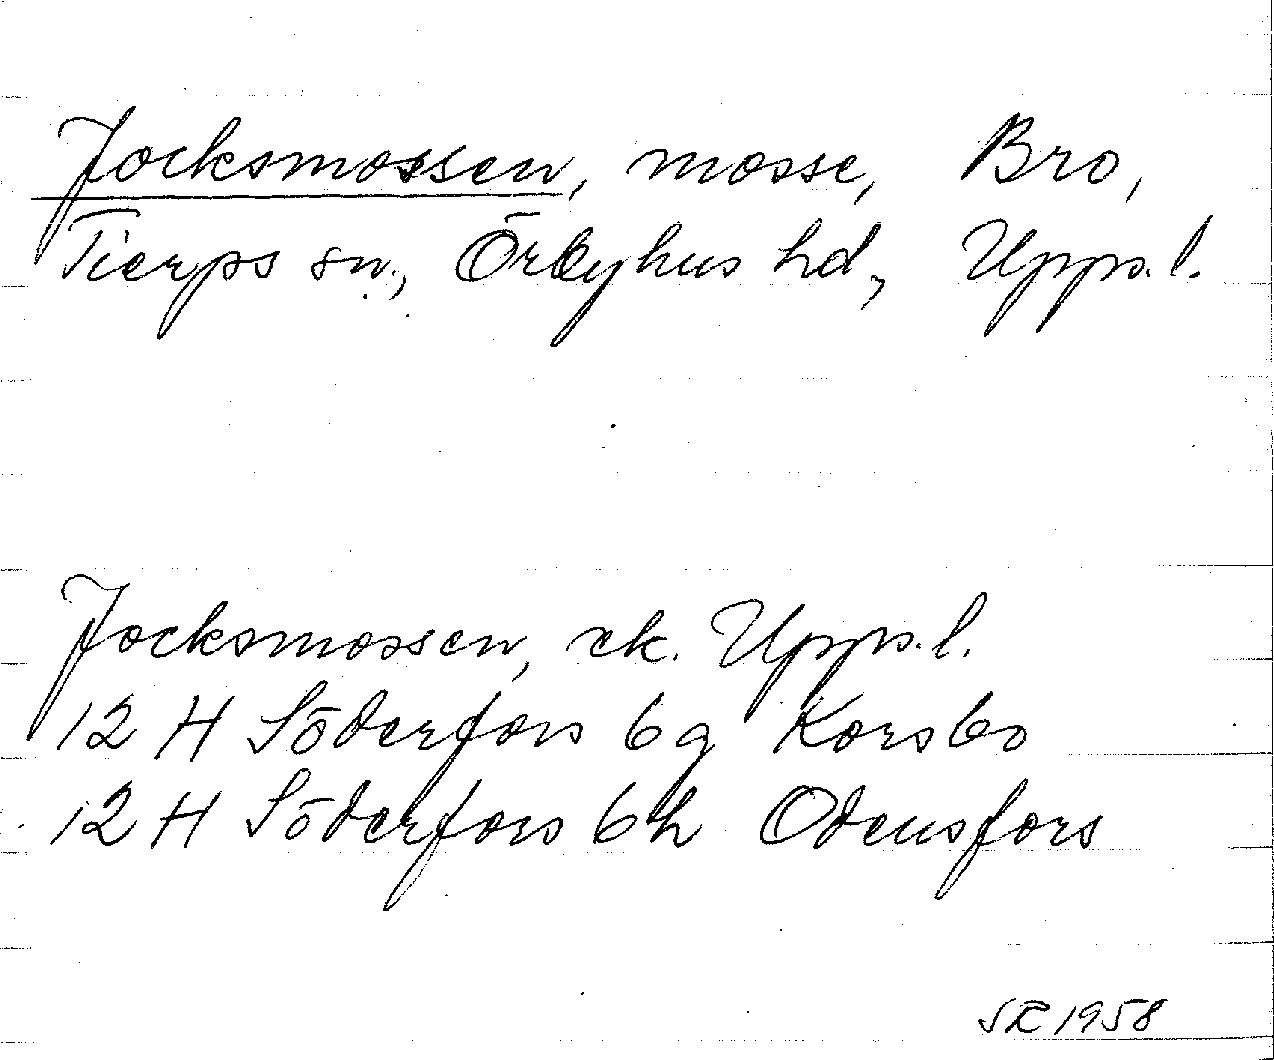 Jocksmossen, mosse, Bro,
Tierps sn., Örbyhus hd, Upps.l.
Jocksmossen, ek. Upps.l.
12 H Söderfors 6g Korsbo
12 H Söderfors 6h Odensfors
1958